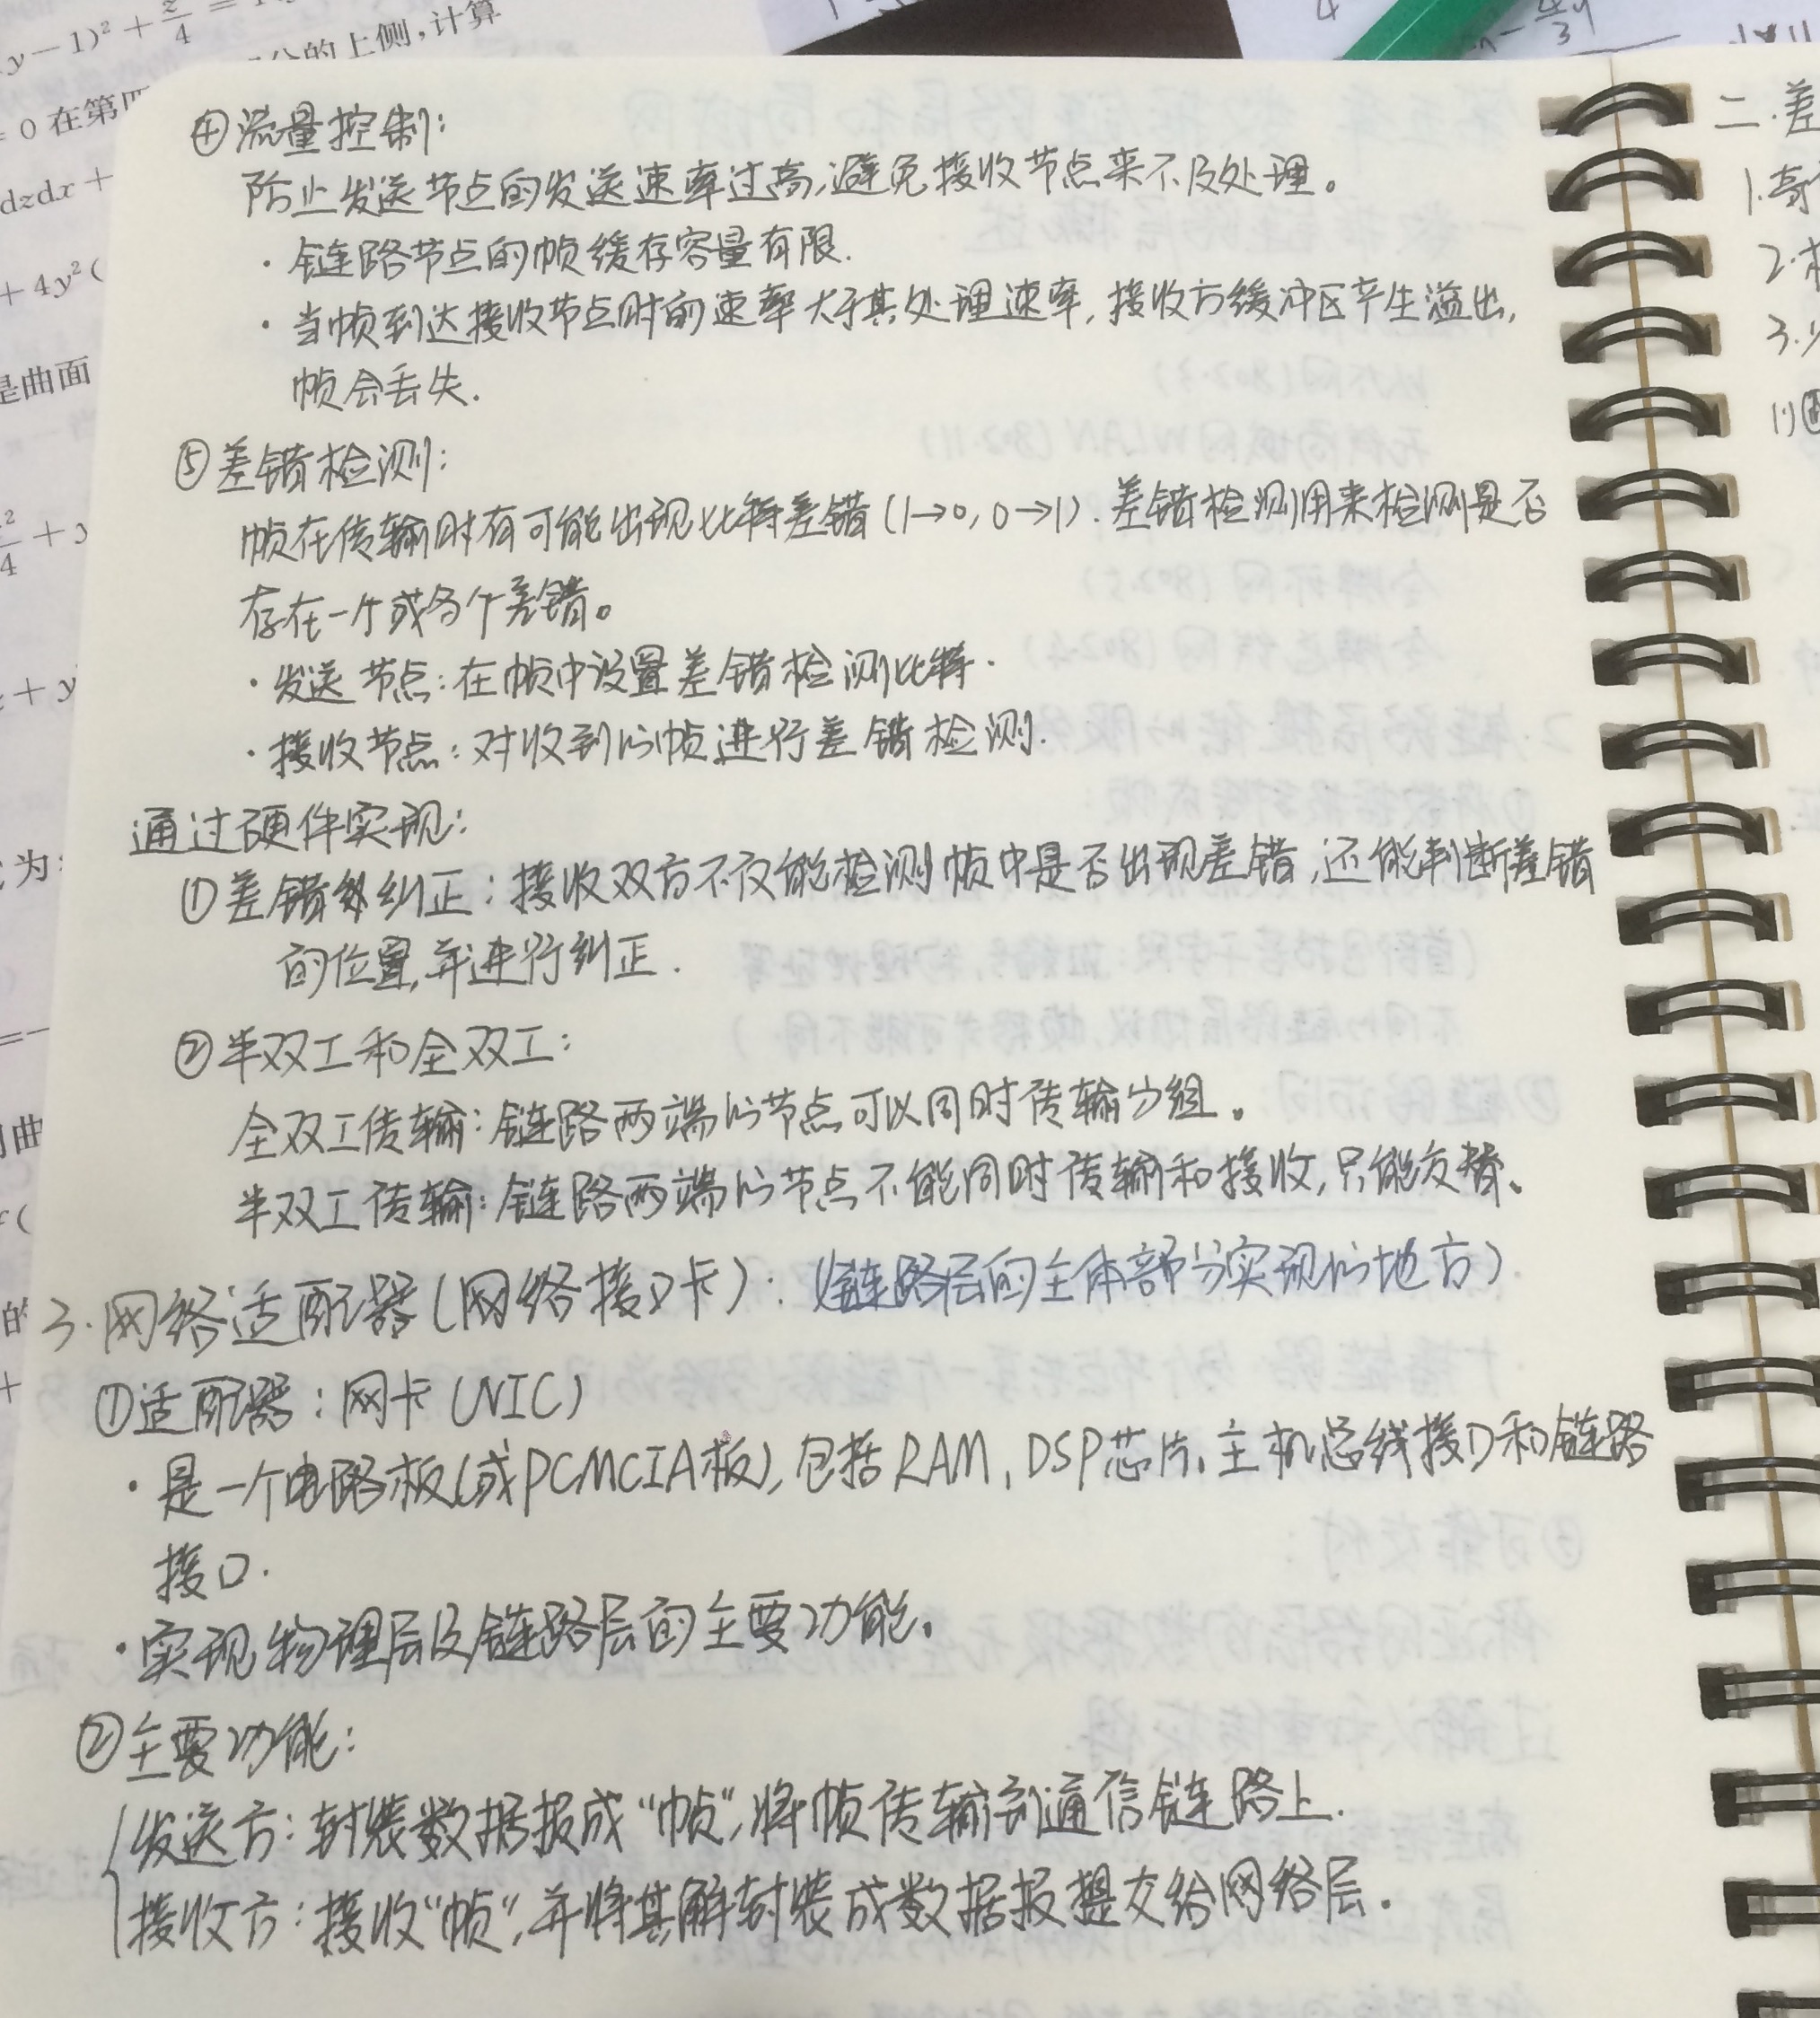 ④流量控制:
防止发送节点的发送速率过高,避免接收节点来不及处理。
· 链路节点的帧缓存容量有限.
· 当帧到达接收节点时的速率大于其处理速率,接收方缓冲区产生溢出,
帧会丢失.
⑤差错检测:
帧在传输时有可能出现比特差错(1→0,0→1).差错检测用来检测是否
存在一个或多个差错。
· 发送节点:在帧中设置差错检测比特.
· 接收节点:对收到的帧进行差错检测.
通过硬件实现:
①差错纠正:接收双方不仅能检测帧中是否出现差错,还能判断差错
的位置,并进行纠正.
②半双工和全双工:
全双工传输:链路两端的节点可以同时传输分组。
半双工传输:链路两端的节点不能同时传输和接收,只能交替、
3.网络适配器(网络接口卡):(链路层的主体部分实现的地方)
①适配器:网卡(NIC)
· 是一个电路板(或PCMCIA板),包括RAM,DSP芯片、主机总线接口和链路
接口.
· 实现物理层及链路层的主要功能。
②主要功能:
发送方:封装数据报成“帧”,将帧传输到通信链路上.
接收方:接收“帧”,并将其解封装成数据报提交给网络层.
y-1)²+z/4
的上侧,计算
= 0 在第
dzdx+
+ 4y²(
是曲面
+ y
为:
曲
的
二.差
1.奇
2.
3.